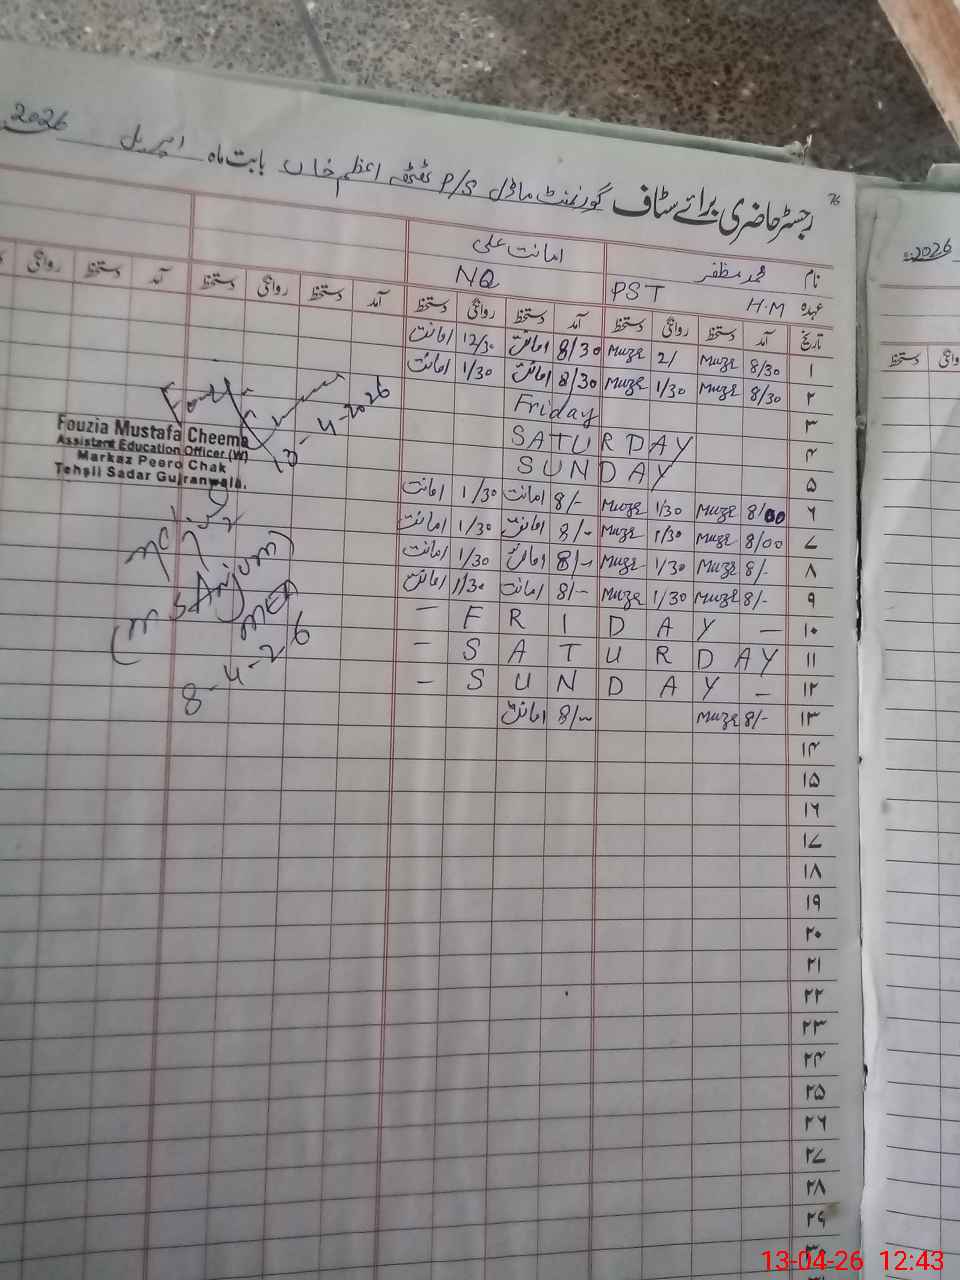 2026
رجسٹر حاضری برائے سٹاف گورنمنٹ ماڈل P/S ٹھٹھہ اعظم خاں بابت ماہ اپریل 2026
76
نام محمد مظفر امانت علی
عہدہ H.M PST NQ
تاریخ آمد دستخط روانگی دستخط آمد دستخط روانگی دستخط آمد دستخط روانگی دستخط آمد دستخط روانگی
۱ 8/30 Muze 2/ Muze 8/30 امانت 12/30 امانت
۲ 8/30 Muze 1/30 Muze 8/30 امانت 1/30 امانت
۳ Friday
۴ SATURDAY
۵ SUNDAY
۶ 8/00 Muze 1/30 Muze 8/- امانت 1/30 امانت
۷ 8/00 Muze 1/30 Muze 8/- امانت 1/30 امانت
۸ 8/- Muze 1/30 Muze 8/- امانت 1/30 امانت
۹ 8/- Muze 1/30 Muze 8/- امانت 1/30 امانت
۱۰ - F R I D A Y -
۱۱ - S A T U R D A Y
۱۲ - S U N D A Y -
۱۳ 8/- Muze 8/- امانت
۱۴
۱۵
۱۶
۱۷
۱۸
۱۹
۲۰
۲۱
۲۲
۲۳
۲۴
۲۵
۲۶
۲۷
۲۸
۲۹
۳۰
13-4-2026
Fouzia Mustafa Cheema
Assistant Education Officer (W)
Markaz Peero Chak
Tehsil Sadar Gujranwala.
(M S Anjum)
MEA
8-4-26
2026
دستخط روانگی
13-04-26 12:43